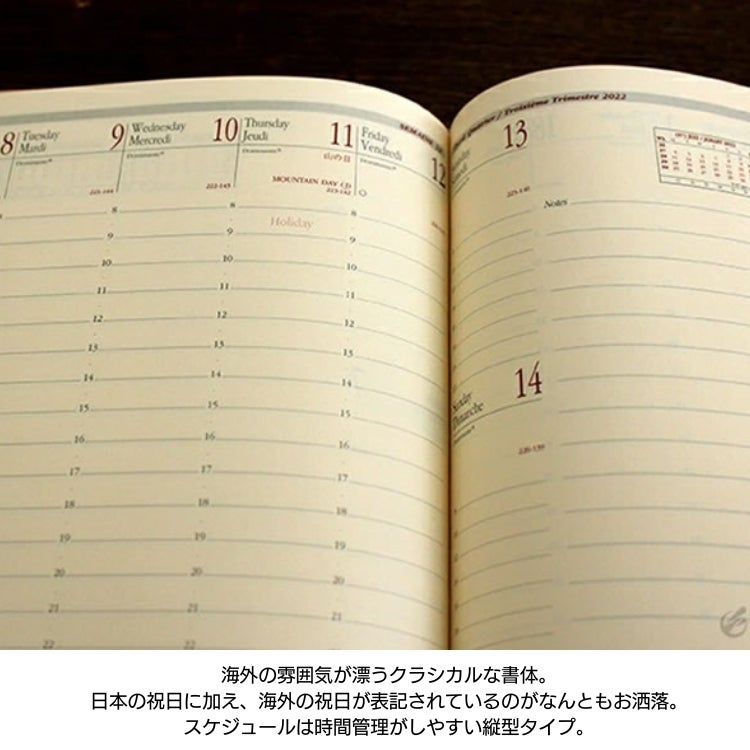 SEMAINE
Quarter / Troisième Trimestre 2022
8 Tuesday
Mardi
9 Wednesday
Mercredi
Dominante
222-144
10 Thursday
Jeudi
Dominante
222-143
11 Friday
Vendredi
Dominante
山の日
MOUNTAIN DAY CD
223-142
12
13
225-140
Notes
Holiday
8
9
10
11
12
13
14
15
16
17
18
19
20
21
22
8
9
10
11
12
13
14
15
16
17
18
19
20
21
22
8
9
10
11
12
13
14
15
16
17
18
19
20
21
14
Sunday
Dimanche
226-139
海外の雰囲気が漂うクラシカルな書体。
日本の祝日に加え、海外の祝日が表記されているのがなんともお洒落。
スケジュールは時間管理がしやすい縦型タイプ。